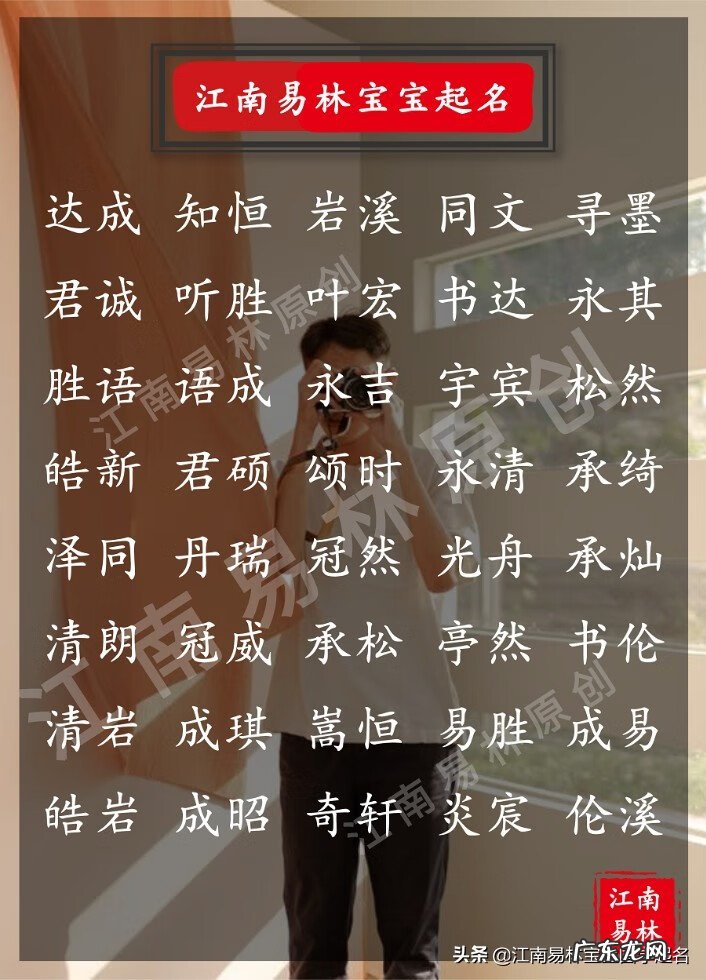 江南易林宝宝起名
达成 知恒 岩溪 同文 寻墨
君诚 听胜 叶宏 书达 永其
胜语 语成 永吉 宇宾 松然
皓新 君硕 颂时 永清 承绮
泽同 丹瑞 冠然 光舟 承灿
清朗 冠威 承松 亭然 书伦
清岩 成琪 嵩恒 易胜 成易
皓岩 成昭 奇轩 炎宸 伦溪
江南易林原创
江南易林原创
江南易林原创
江南
易林
广东龙网
头条 @江南易林宝宝起名